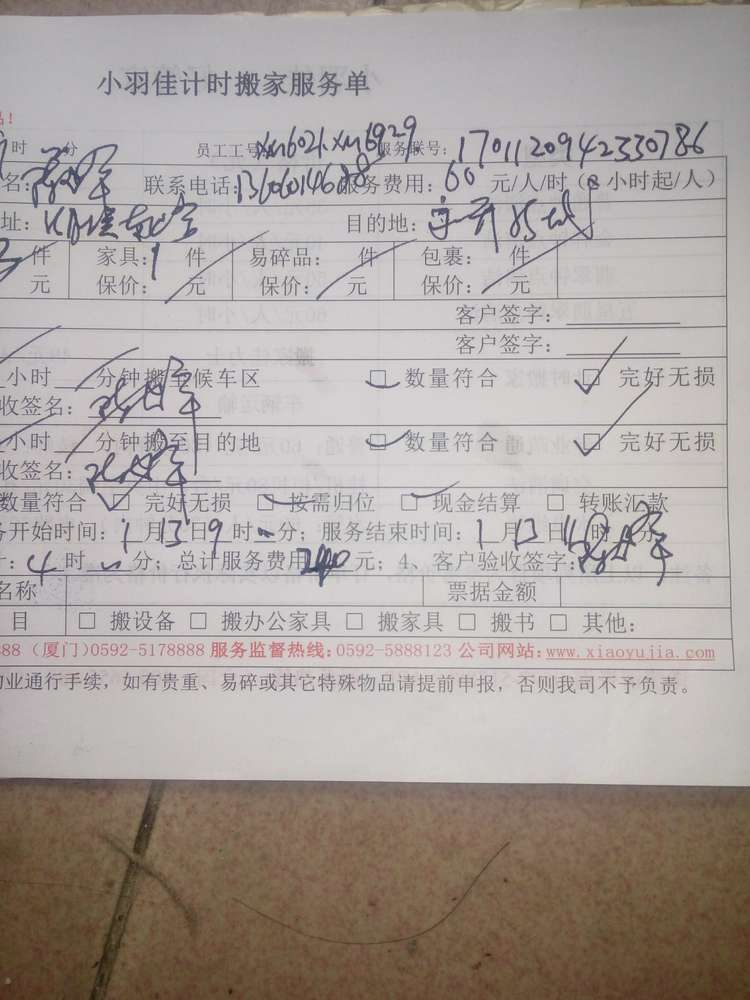 小羽佳计时搬家服务单
时 分 员工工号 xm6021xm6929 服务联号: 1701120942330786
名: 联系电话: 服务费用: 60 元/人/时( 小时起/人)
址: 目的地:
件 家具: 1 件 易碎品: 件 包裹: 件
元 保价: 元 保价: 元 保价: 元
客户签字:
客户签字:
小时 分钟搬至候车区 □ 数量符合 □ 完好无损
收签名:
小时 分钟搬至目的地 □ 数量符合 □ 完好无损
收签名:
数量符合 □ 完好无损 □ 按需归位 □ 现金结算 □ 转账汇款
务开始时间: 1 月 13 日 9 时 分; 服务结束时间: 1 月 13 日 时 分
: 4 时 分; 总计服务费用 240 元; 4、客户验收签字:
名称 票据金额
目 □ 搬设备 □ 搬办公家具 □ 搬家具 □ 搬书 □ 其他:
888 (厦门)0592-5178888 服务监督热线:0592-5888123 公司网站:www.xiaoyujia.com
业通行手续,如有贵重、易碎或其它特殊物品请提前申报,否则我司不予负责。